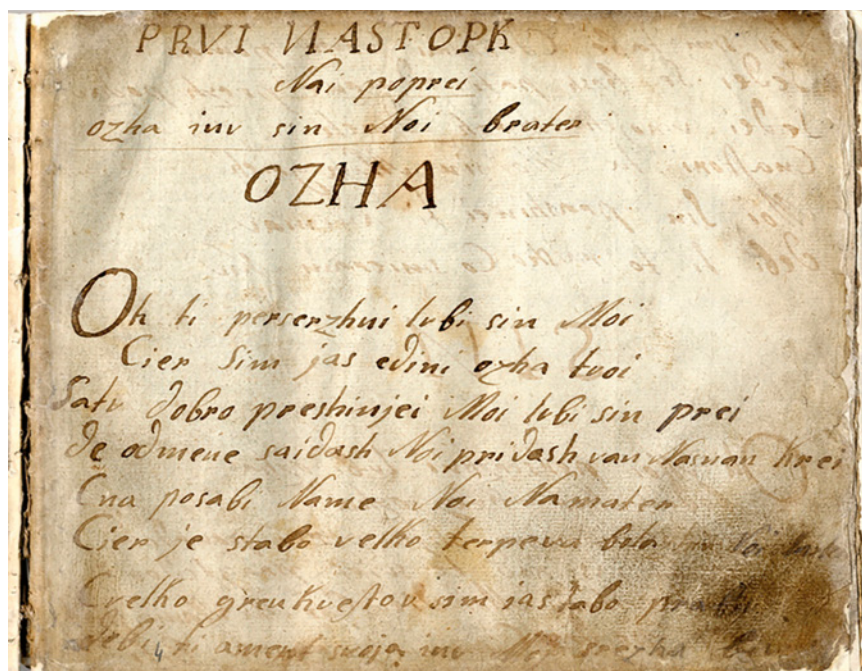 PRVI NASTOPK
Nai poprei
ozha inv sin Noi brater
OZHA
Oh ti perserzhni lvbi sin Moi
Cier sim jas edini ozha tvoi
Satv dobro preshinjei Moi lvbi sin prei
de odmene saidash Noi pridash van Nasnan krei
Cna posabi Name Noi Namater
Cier je stabo velko terpeva
Cvelko greu kveſtov sim jas tabo
debi ni ament svoja inv